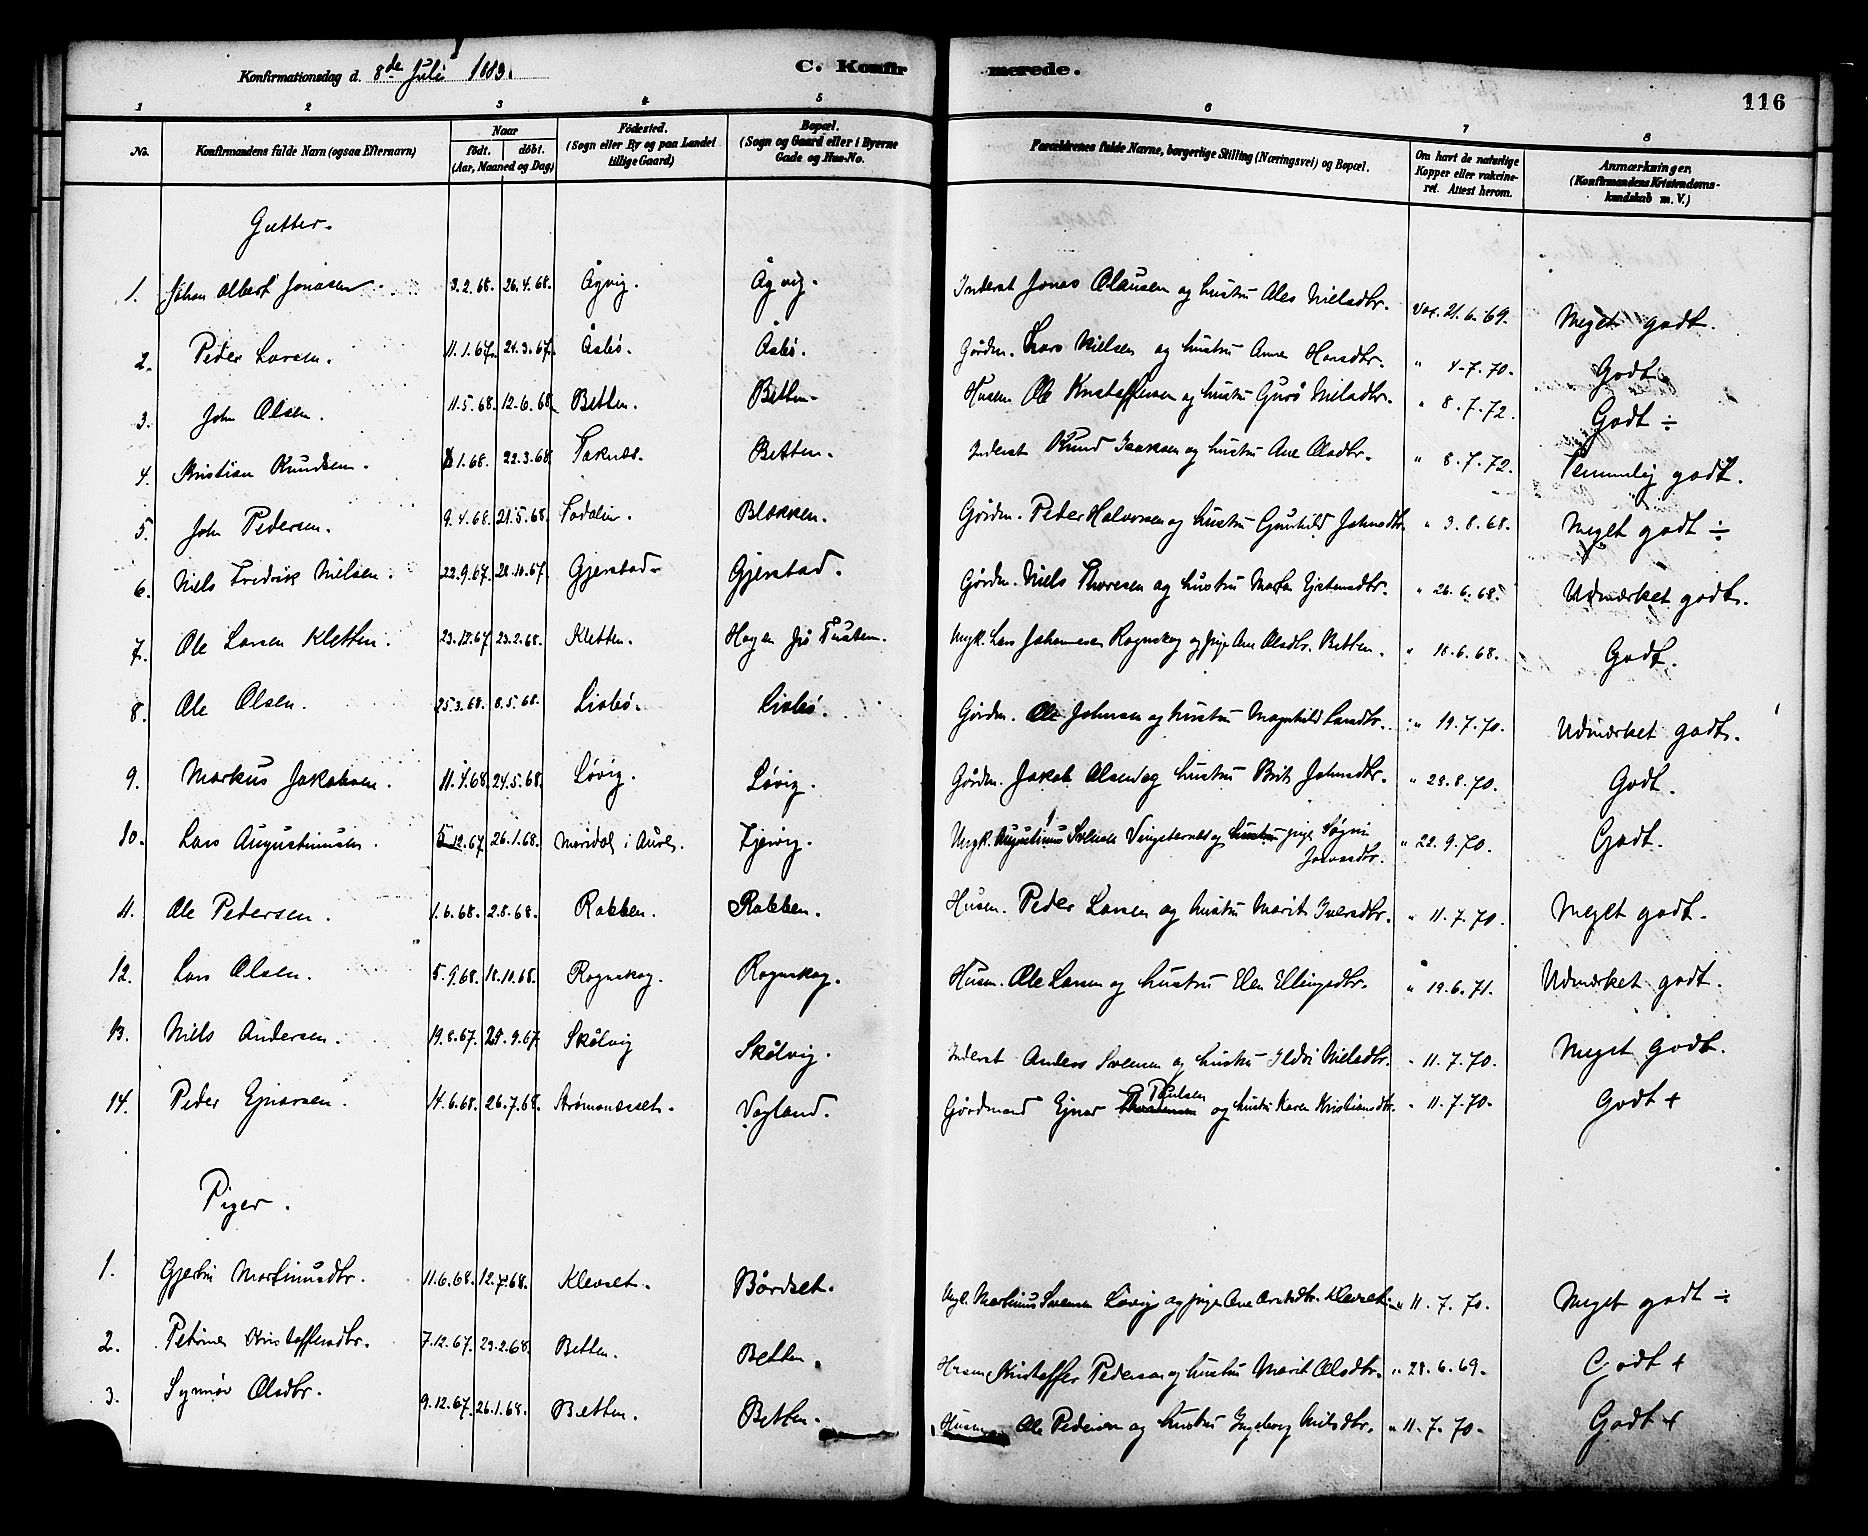 Konfirmationsdag d. 8de Juli 1883. C. Konfirmerede. 116
1 2 3 4 5 6 7 8
No. Konfirmandens fulde Navn (ogsaa Efternavn) Naar født. døbt. (Aar, Maaned og Dag) Fødested. (Sogn eller By og paa Landet tillige Gaard) Bopæl. (Sogn og Gaard eller i Byerne Gade og Hus-No. Forældrenes fulde Navne, borgerlige Stilling (Næringsvei) og Bopæl. Om havt de naturlige Kopper eller vakcineret. Attest herom. Anmærkninger. (Konfirmandens Kristendomskundskab m. V.)
Gutter.
1. Johan Albert Jonasen. 3.2.68. 26.4.68. Ågvig. Ågvig. Inderst Jonas Olausen og hustru Ales Nielsdtr. Vac. 21.6.69. Meget godt.
2. Peder Larsen. 11.1.67. 24.3.67. Åsbø. Åsbø. Gårdm. Lars Nielsen og hustru Anne Hansdtr. " 4-7.70. Godt.
3. John Olsen. 11.5.68. 12.6.68. Betten. Betten. Husm. Ole Kristoffersen og hustru Gurø Nielsdtr. " 8.7.72. Godt ÷
4. Kristian Knudsen. 1.68. 22.3.68. Taknes. Betten. Inderst Knud Isaksen og hustru Ane Olsdtr. " 8.7.72. Temmelig godt.
5. John Pedersen. 9.4.68. 21.5.68. Todalen. Blekken. Gårdm. Peder Halvorsen og hustru Gunhild Johnsdtr. " 3.8.68. Meget godt ÷
6. Niels Fredrik Nielsen. 22.9.67. 28.10.67. Gjerstad. Gjerstad. Gårdm. Niels Thoresen og hustru Marta Ejstensdtr. " 26.6.68. Udmærket godt.
7. Ole Larsen Kletten. 23.12.67. 23.2.68. Kletten. Hagen på Tusten. Ungk. Lars Johannesen Rognskog og pige Ane Olsdtr. Betten. " 18.6.68. Godt.
8. Ole Olsen. 25.3.68. 8.5.68. Lisbø. Lisbø. Gårdm. Ole Johnsen og hustru Magnhild Larsdtr. " 19.7.70. Udmærket godt.
9. Markus Jakobsen. 11.4.68. 24.5.68. Løvig. Løvig. Gårdm. Jakob Olsen og hustru Brit Johnsdtr. " 23.8.70. Godt.
10. Lars Augustinusen. 5.12.67. 26.1.68. i Aure. Ejevig. Ungk. Augustinus og hustru pige " 22.9.70. Godt.
11. Ole Pedersen. 1.6.68. 2.8.68. Rabben. Rabben. Husm. Peder Larsen og hustru Marit Iversdtr. " 11.7.70. Meget godt.
12. Lars Olsen. 5.9.68. 18.10.68. Rognskog. Rognskog. Husm. Ole Larsen og hustru Elen Ellingsdtr. " 19.6.71. Udmærket godt.
13. Niels Andersen. 19.8.67. 29.9.67. Skålvig Skålvig. Inderst Anders Svensen og hustru Ildri Nielsdtr. " 11.7.70. Meget godt.
14. Peder Ejnarsen. 14.6.68. 26.7.68. Strømsnesset. Vagland. Gårdmand Ejnar Paulsen og hustru Karen Kristiansdtr. " 11.7.70. Godt +
Piger.
1. Gjertru Martinusdtr. 11.6.68. 12.7.68. Klevset. Bårdset. Ungk. Martinus Svensen Løvig og pige Ane Arntsdtr. Klevset. " 11.7.70. Meget godt ÷
2. Petrine Kristoffersdtr. 7.12.67. 23.2.68. Betten. Betten. Husm Kristoffer Pedersen og hustru Marit Olsdtr. " 28.6.69. Godt +
3. Synnøv Olsdtr. 9.12.67. 26.1.68. Betten. Betten. Husm Ole Pedersen og hustru Ingeborg Nilsdtr. " 11.7.70. Godt +